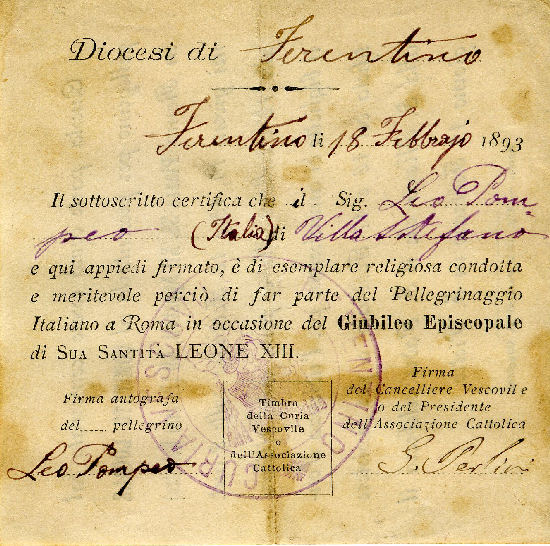 Diocesi di Ferentino
Ferentino li 18 Febbrajo 1893
Il sottoscritto certifica che il Sig. Leo Pom-
peo (Italia) di Villa S Stefano
e qui appiedi firmato, è di esemplare religiosa condotta
e meritevole perciò di far parte del Pellegrinaggio
Italiano a Roma in occasione del Giubileo Episcopale
di SUA SANTITÀ LEONE XIII.
Firma autografa
del pellegrino
Leo Pompeo
Timbro
della Curia
Vescovile
o
dell'Associazione
Cattolica
Firma
del Cancelliere Vescovile
o del Presidente
dell'Associazione Cattolica
G.